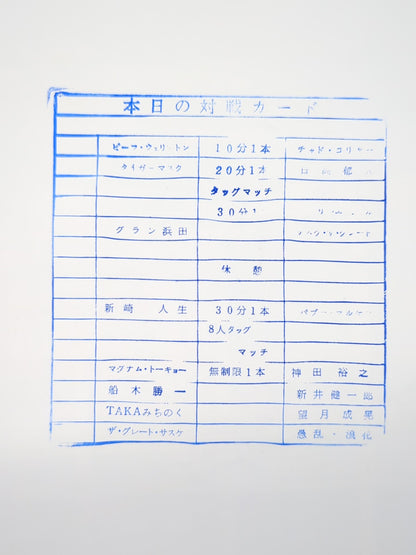 本日の対戦カード
ビーフ・ウェリントン 10分1本 チャド・コリヤー
タイガーマスク 20分1本 日高郁人
タッグマッチ
30分1
グラン浜田
休憩
新崎人生 30分1本
8人タッグ
マッチ
マグナム・トーキョー 無制限1本 神田裕之
船木勝一 新井健一郎
TAKAみちのく 望月成晃
ザ・グレート・サスケ 愚乱・浪花